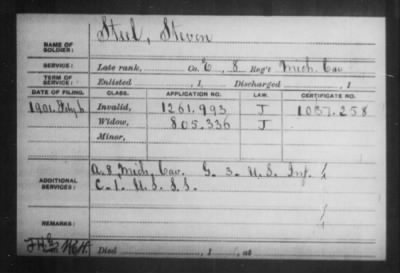 Steel, Steven
NAME OF SOLDIER:
SERVICE: Late rank, Co. E, 8 Reg't Mich. Cav.
TERM OF SERVICE: Enlisted , 1 Discharged , 1
DATE OF FILING. CLASS. APPLICATION NO. LAW. CERTIFICATE NO.
1901. Feby. 6 Invalid, 1261.993 J 1037.258
Widow, 805.336 J
Minor,
ADDITIONAL SERVICES: A. 8 Mich. Cav. G. 3. U.S. Inf.
C. 1. U.S.S.S.
REMARKS:
Died , 1 , at